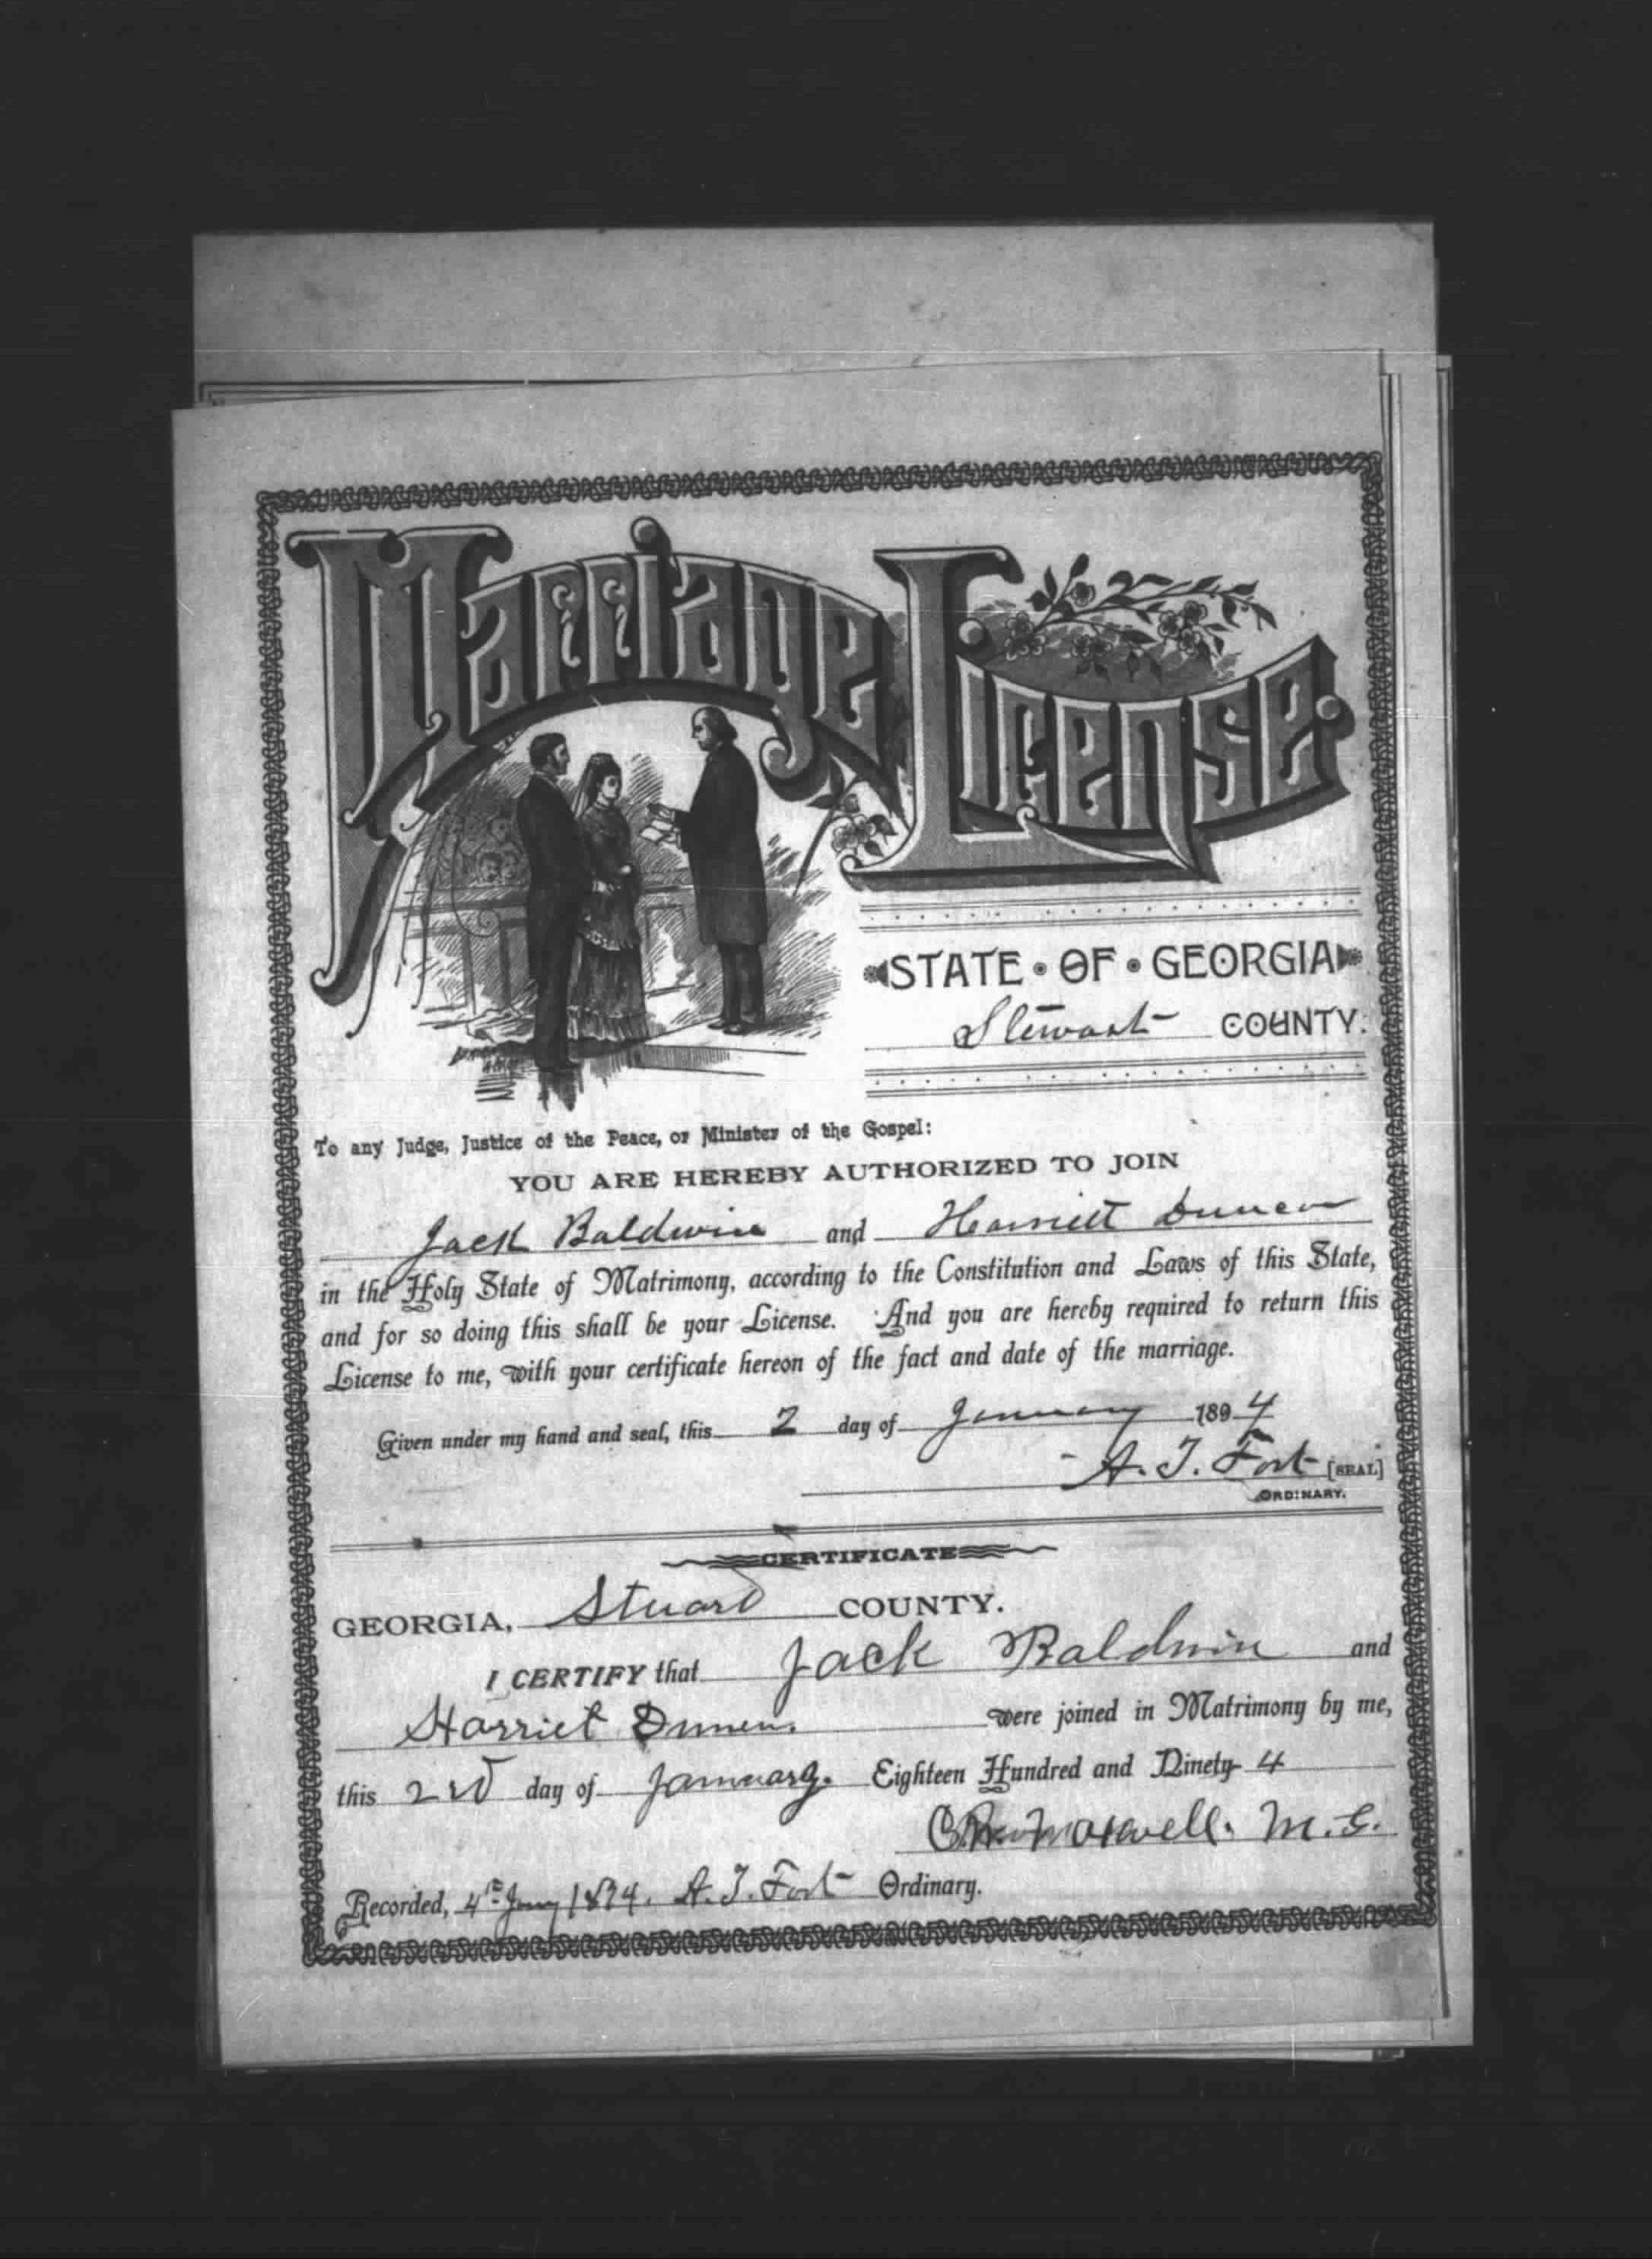 Marriage License.
STATE • OF • GEORGIA
Stewart COUNTY.
To any Judge, Justice of the Peace, or Minister of the Gospel:
YOU ARE HEREBY AUTHORIZED TO JOIN
Jack Baldwin and Harriett Duncan
in the Holy State of Matrimony, according to the Constitution and Laws of this State,
and for so doing this shall be your License. And you are hereby required to return this
License to me, with your certificate hereon of the fact and date of the marriage.
Given under my hand and seal, this 2 day of January 1894
A. T. Fort [SEAL]
ORDINARY.
CERTIFICATE
GEORGIA, Stuard COUNTY.
I CERTIFY that Jack Baldwin and
Harriet were joined in Matrimony by me,
this 2nd day of January. Eighteen Hundred and Ninety 4
Maxwell. M.G.
Recorded, 4th Jany 1894. A. T. Fort Ordinary.